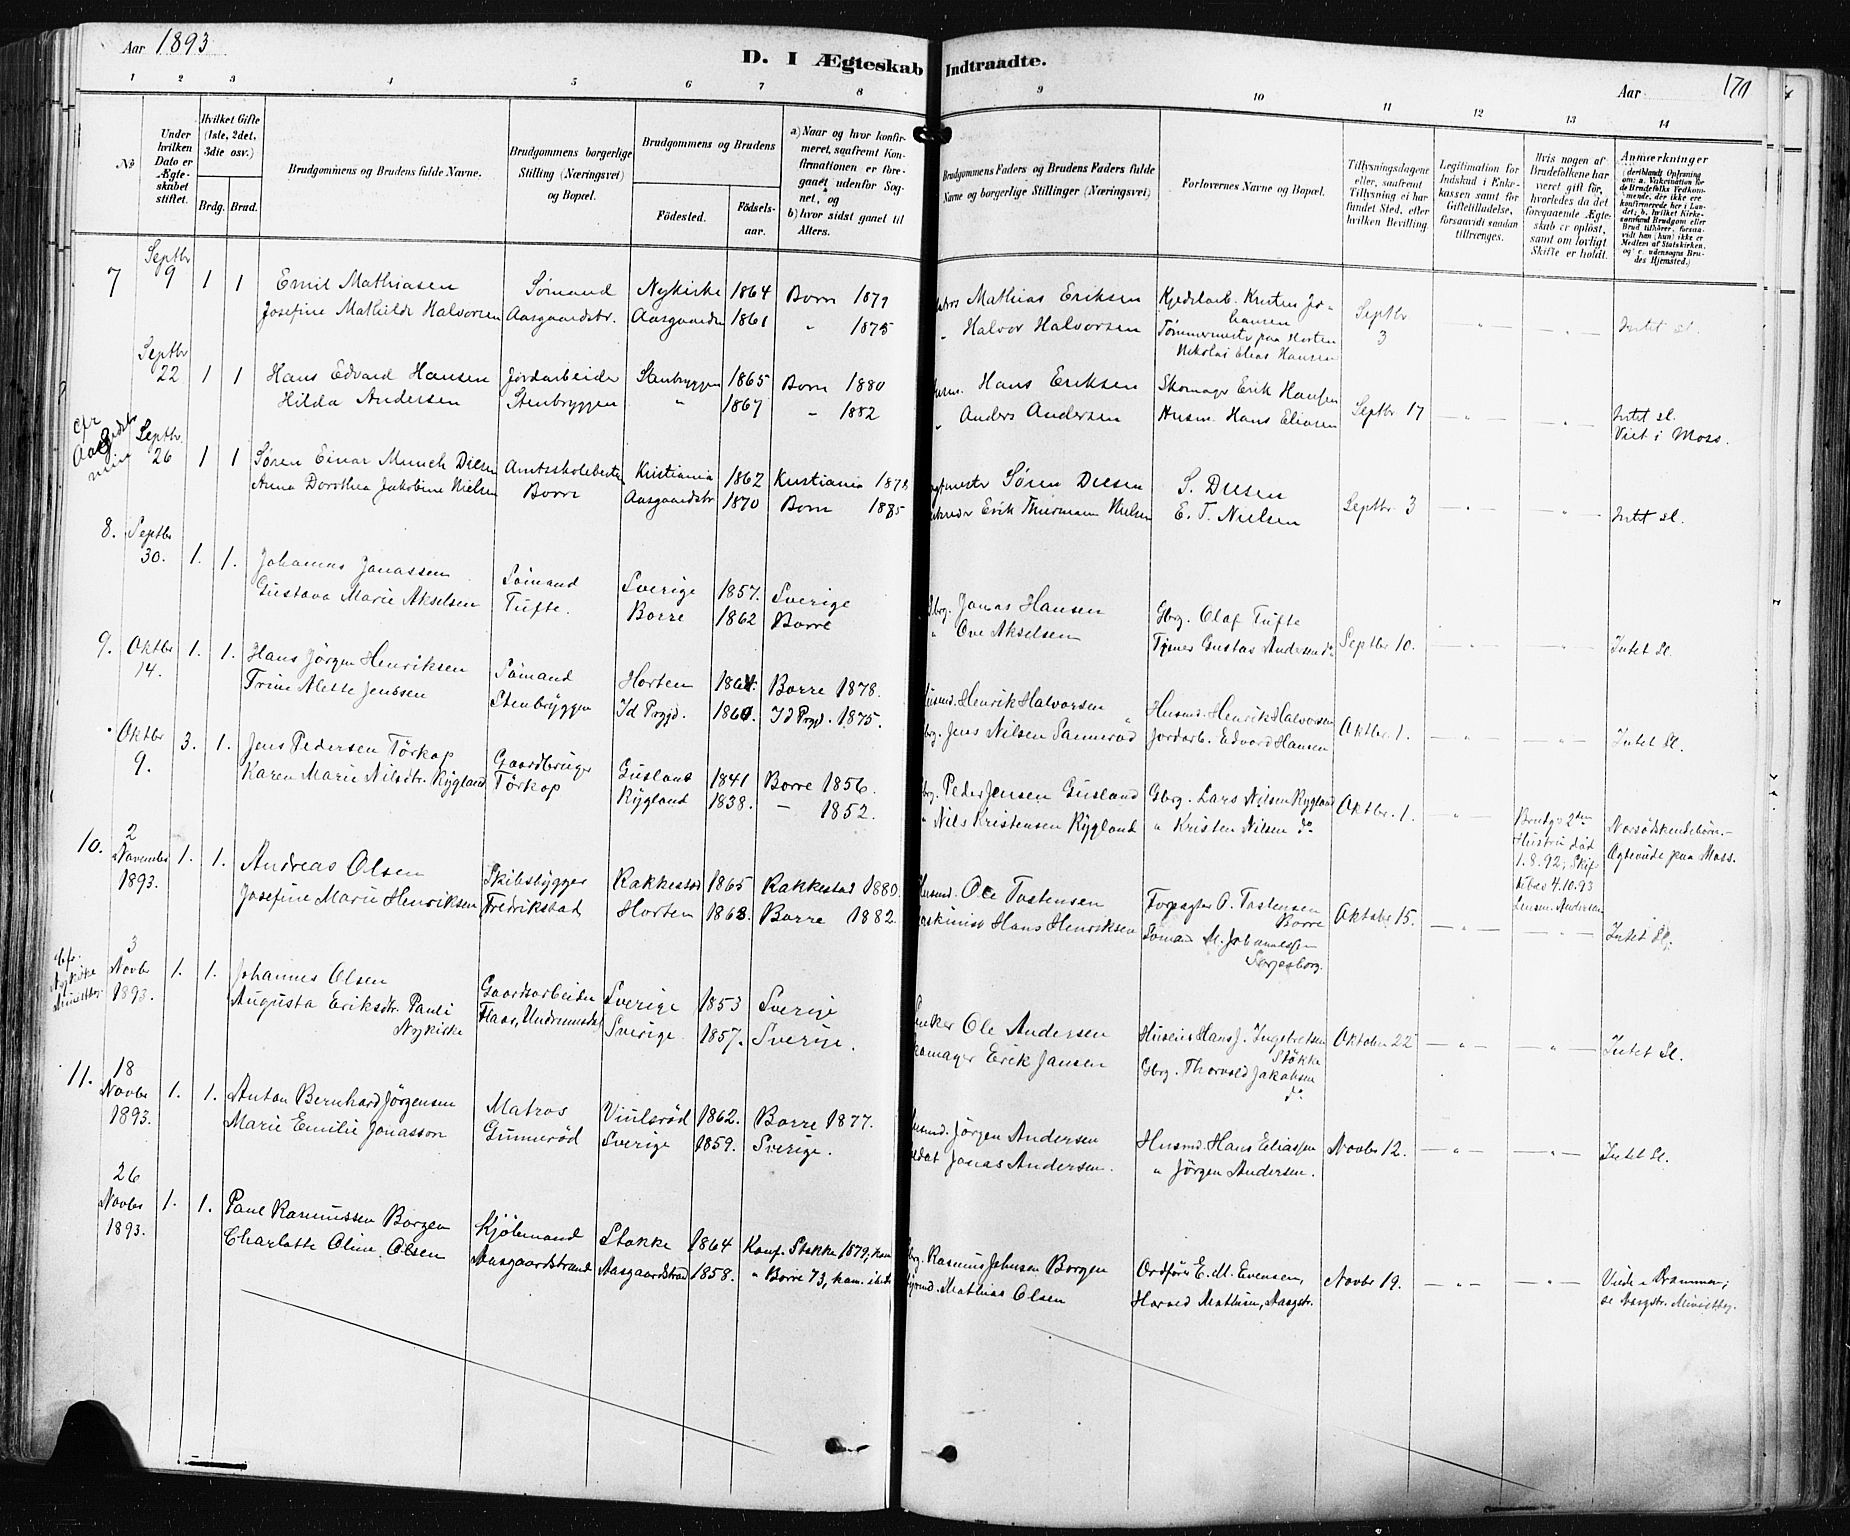 Aar 1893
D. I Ægteskab Indtraadte.
Aar
170
1 2 3 4 5 6 7 8 9 10 11 12 13 14
No
Under hvilken Dato er Ægteskabet stiftet.
Hvilket Gifte (1ste, 2det, 3die osv.)
Brdg. Brud.
Brudgommens og Brudens fulde Navne.
Brudgommens borgerlige Stilling (Næringsvei) og Bopæl.
Brudgommens og Brudens
Fødested.
Fødselsaar.
a) Naar og hvor konfirmeret, saafremt Konfirmationen er foregaaet udenfor Sognet, og
b) hvor sidst gaaet til Alters.
Brudgommens Faders og Brudens Faders fulde Navne og borgerlige Stillinger (Næringsvei)
Forlovernes Navne og Bopæl.
Tillysningsdagene eller, saafremt Tillysning ei har fundet Sted, efter hvilken Bevilling.
Legitimation for Indskud i Enkekassen samt for Giftetilladelse, forsaavidt saadan tiltrænges.
Hvis nogen af Brudefolkene har været gift før, hvorledes da det foregaaende Ægteskab er opløst, samt om lovligt Skifte er holdt.
Anmærkninger
7 Septbr 9 1 1 Emil Mathiasen Sømand Nykirke 1864 Borre 1879 Mathias Eriksen Kjedelarb. Kristen Johansen Septbr 3 — " — — " — Intet sl.
Josefine Mathilde Halvorsen Aasgaardstr. Aasgaardstr 1861 " 1875 " Halvor Halvorsen Tømmermester paa Horten
Nikolai Elias Hansen
Septbr 22 1 1 Hans Edvard Hansen Jordarbeider Stenbryggen 1865 Borre 1880 Hans Eriksen Skomager Erik Hansen Septbr 17 — " — — " — Intet sl.
Hilda Andersen Stenbryggen " 1867 " 1882 " Anders Andersen Husm. Hans Eliasen Viet i Moss.
cfr
Septbr 26 1 1 Søren Einar Munch Diesen Amtsskolebestyr Kristiania 1862 Kristiania 1878 Søren Diesen S. Diesen Septbr 3 — " — — " — Intet sl.
Anna Dorothea Jakobine Nielsen Borre Aasgaardstr 1870 Borre 1885 Erik Thiermann Nielsen E. T. Nielsen
8. Septbr 30. 1. 1. Johannes Jonassen Sømand Sverige 1857. Sverige Gbrg. Jonas Hansen Gbrg. Olaf Tufte Septbr 10. — " — — " — Intet Sl.
Gustava Marie Akselsen Tufte. Borre 1862 Borre " Ove Akselsen Gustav Andersen do
9. Oktbr 14. 1. 1. Hans Jörgen Henriksen Sømand Horten 1864. Borre 1878. Husmd. Henrik Halvorsen Husmd. Henrik Halvorsen Oktbr. 1. — " — — " — Intet Sl.
Trine Alette Jenssen Stenbryggen Id Prgjd. 1860. Id Prgjd. 1875. Gbrg. Jens Nilsen Jordarb. Edvard Hansen
Oktbr 9. 3. 1. Jens Pedersen Törkop Gaardbruger Gusland 1841 Borre 1856. Gbrg. Peder Jensen Gusland Gbrg. Lars Nilsen Rygland Oktbr. 1. — " — Brudgs 2den Hustru død 1.8.92; Skif. 4.10.93 Lensm. Andersen Næsödskendebörn.
Karen Marie Nilsdtr. Rygland Törkop Rygland 1838. — " — 1852. " Nils Kristensen Rygland " Kristen Nilsen do Ægteviede paa Moss.
10. 2 November 1893. 1. 1. Andreas Olsen Skibsbygger Rakkestad 1865 Rakkestad 1880. Husmd. Ole Tostensen Forpagter O. Tostensen Borre Oktober 15. — " — — " — Intet Sl.
Josefine Marie Henriksen Fredrikstad Horten 1863. Borre 1882. Maskinist Hans Henriksen Sömand M. Johannessen
Sarpsborg.
Cfr. Nykirke Ministbg. 3 Novbr 1893. 1. 1. Johannes Olsen Gaardsarbeider Sverige 1853 Sverige Ole Andersen Huseier Hans J. Ingebretsen Stökke Oktober 22 — " — — " — Intet Sl.
Augusta Eriksdtr. Pauli Flaar, Undrumsdal Sverige 1857. Sverige. Skomager Erik Jansen Gbrg. Thorvald Jakobsen do
Nykirke
11. 18 Novbr 1893. 1. 1. Anton Bernhard Jörgensen Matros Viulsröd 1862. Borre 1877. Husmd. Jörgen Andersen Husmd. Hans Eliassen Novbr 12. — " — — " — Intet Sl.
Marie Emilie Jonasson Gunneröd Sverige 1859. Sverige. Soldat Jonas Andersen. " Jörgen Andersen.
26 Novbr 1893. 1. 1. Paul Rasmussen Borgen Kjöbmand Stokke 1864 Konf. Stokke 1879, kom Gbrg. Rasmus Johnsen Borgen Ordfører E. M. Evensen, Novbr 19. — " — — " — Viede i Drammen;
Charlotte Oline Olsen Aasgaardstrand Aasgaardstrand 1858. " Borre 73, kom. Mathias Olsen Harald Mathisen, Aasgstr. se Aasgstr. Ministbg.